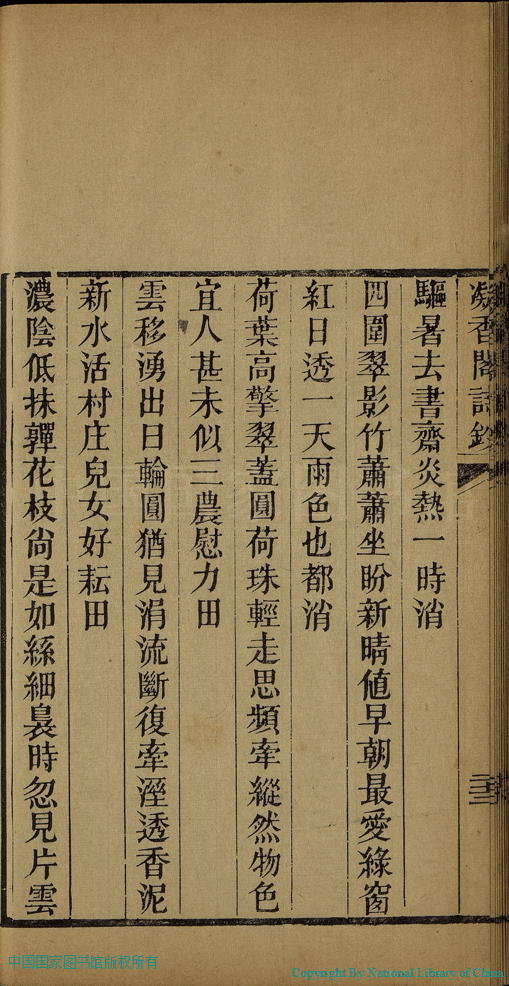 凝香閣詩鈔
二十二
驅暑去書齋炎熱一時消
四圍翠影竹蕭蕭坐盼新晴値早朝最愛綠窗
紅日透一天雨色也都消
荷葉高擎翠蓋圓荷珠輕走思頻牽縱然物色
宜人甚未似三農慰力田
雲移湧出日輪圓猶見涓流斷復牽溼透香泥
新水活村庄兒女好耘田
濃陰低抹嚲花枝尙是如絲細裊時忽見片雲
中国国家图书馆版权所有
Copyright By National Library of China